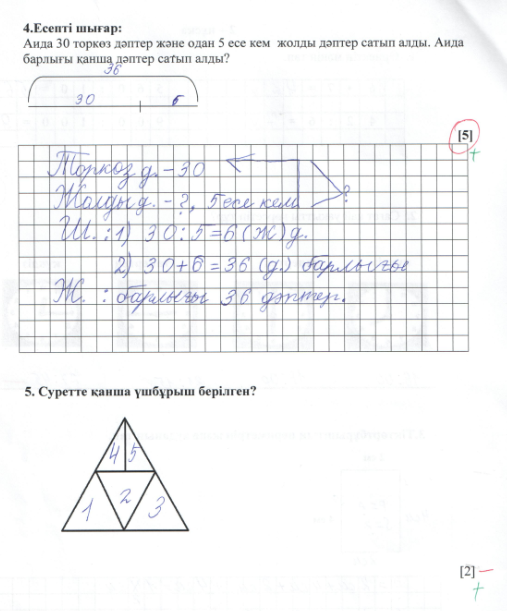 4.Есепті шығар:
Аида 30 торкөз дәптер және одан 5 есе кем жолды дәптер сатып алды. Аида
барлығы қанша дәптер сатып алды?
36
30 6
[5]
+
Торкөз д. – 30
Жолды д. – ?, 5 есе кем ?
Ш. : 1) 30 : 5 = 6 (ж) д.
2) 30 + 6 = 36 (д.) барлығы
Ж. : барлығы 36 дәптер.
5. Суретте қанша үшбұрыш берілген?
4 5
1 2 3
[2] –
+